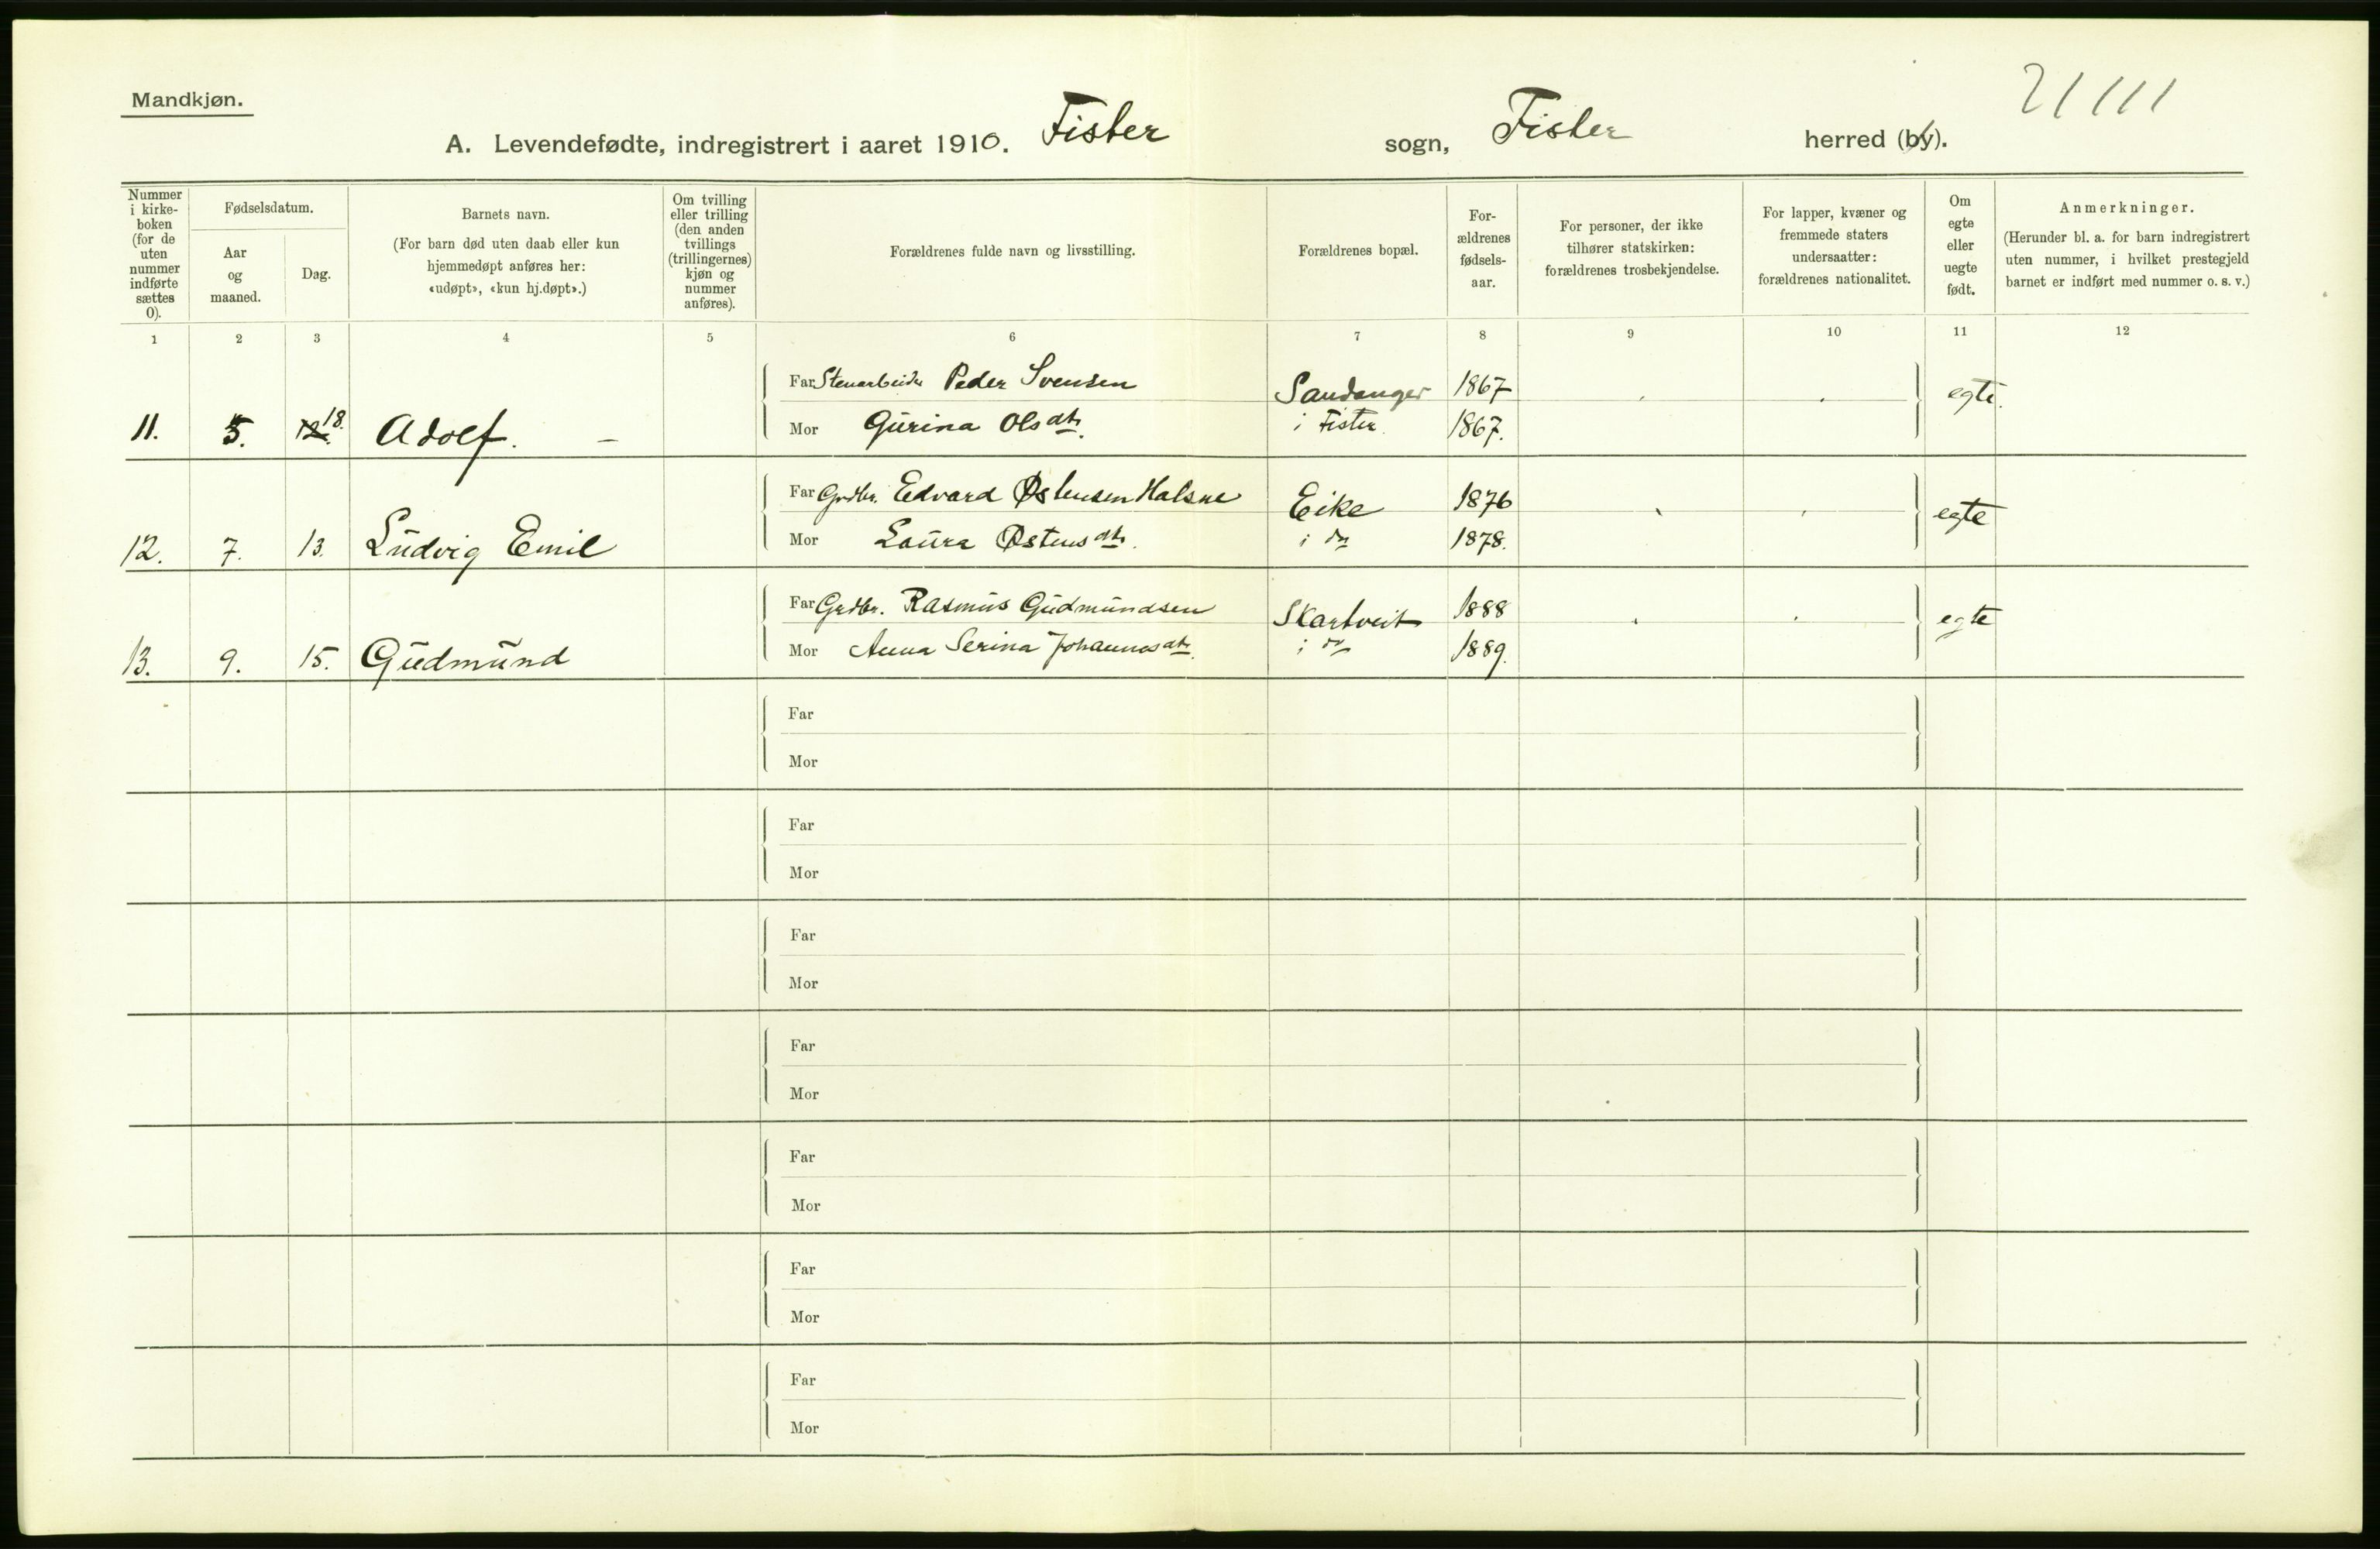 Mandkjøn.
21111
A. Levendefødte, indregistrert i aaret 1910. Fister sogn, Fister herred (by).
Nummer i kirke-boken (for de uten nummer indførte sættes 0).
Fødselsdatum.
Aar og maaned.
Dag.
Barnets navn.
(For barn død uten daab eller kun hjemmedøpt anføres her: «udøpt», «kun hj.døpt».)
Om tvilling eller trilling (den anden tvillings (trillingernes) kjøn og nummer anføres).
Forældrenes fulde navn og livsstilling.
Forældrenes bopæl.
For-ældrenes fødsels-aar.
For personer, der ikke tilhører statskirken: forældrenes trosbekjendelse.
For lapper, kvæner og fremmede staters undersaatter: forældrenes nationalitet.
Om egte eller uegte født.
Anmerkninger.
(Herunder bl. a. for barn indregistrert uten nummer, i hvilket prestegjeld barnet er indført med nummer o. s. v.)
1 2 3 4 5 6 7 8 9 10 11 12
Far Stenarbeider Peder Svensen Sandanger 1867 egte.
11. 5. 12. 18. Adolf. – Mor Gurina Olsdtr. i Fister. 1867.
Far Grdbr. Edvard Østensen Halsne Eike 1876 egte
12. 7. 13. Ludvig Emil Mor Laura Østensdtr. i do 1878.
Far Grdbr. Rasmus Gudmundsen Skartveit 1888 egte
13. 9. 15. Gudmund Mor Anna Serina Johannesdtr. i do 1889.
Far
Mor
Far
Mor
Far
Mor
Far
Mor
Far
Mor
Far
Mor
Far
Mor